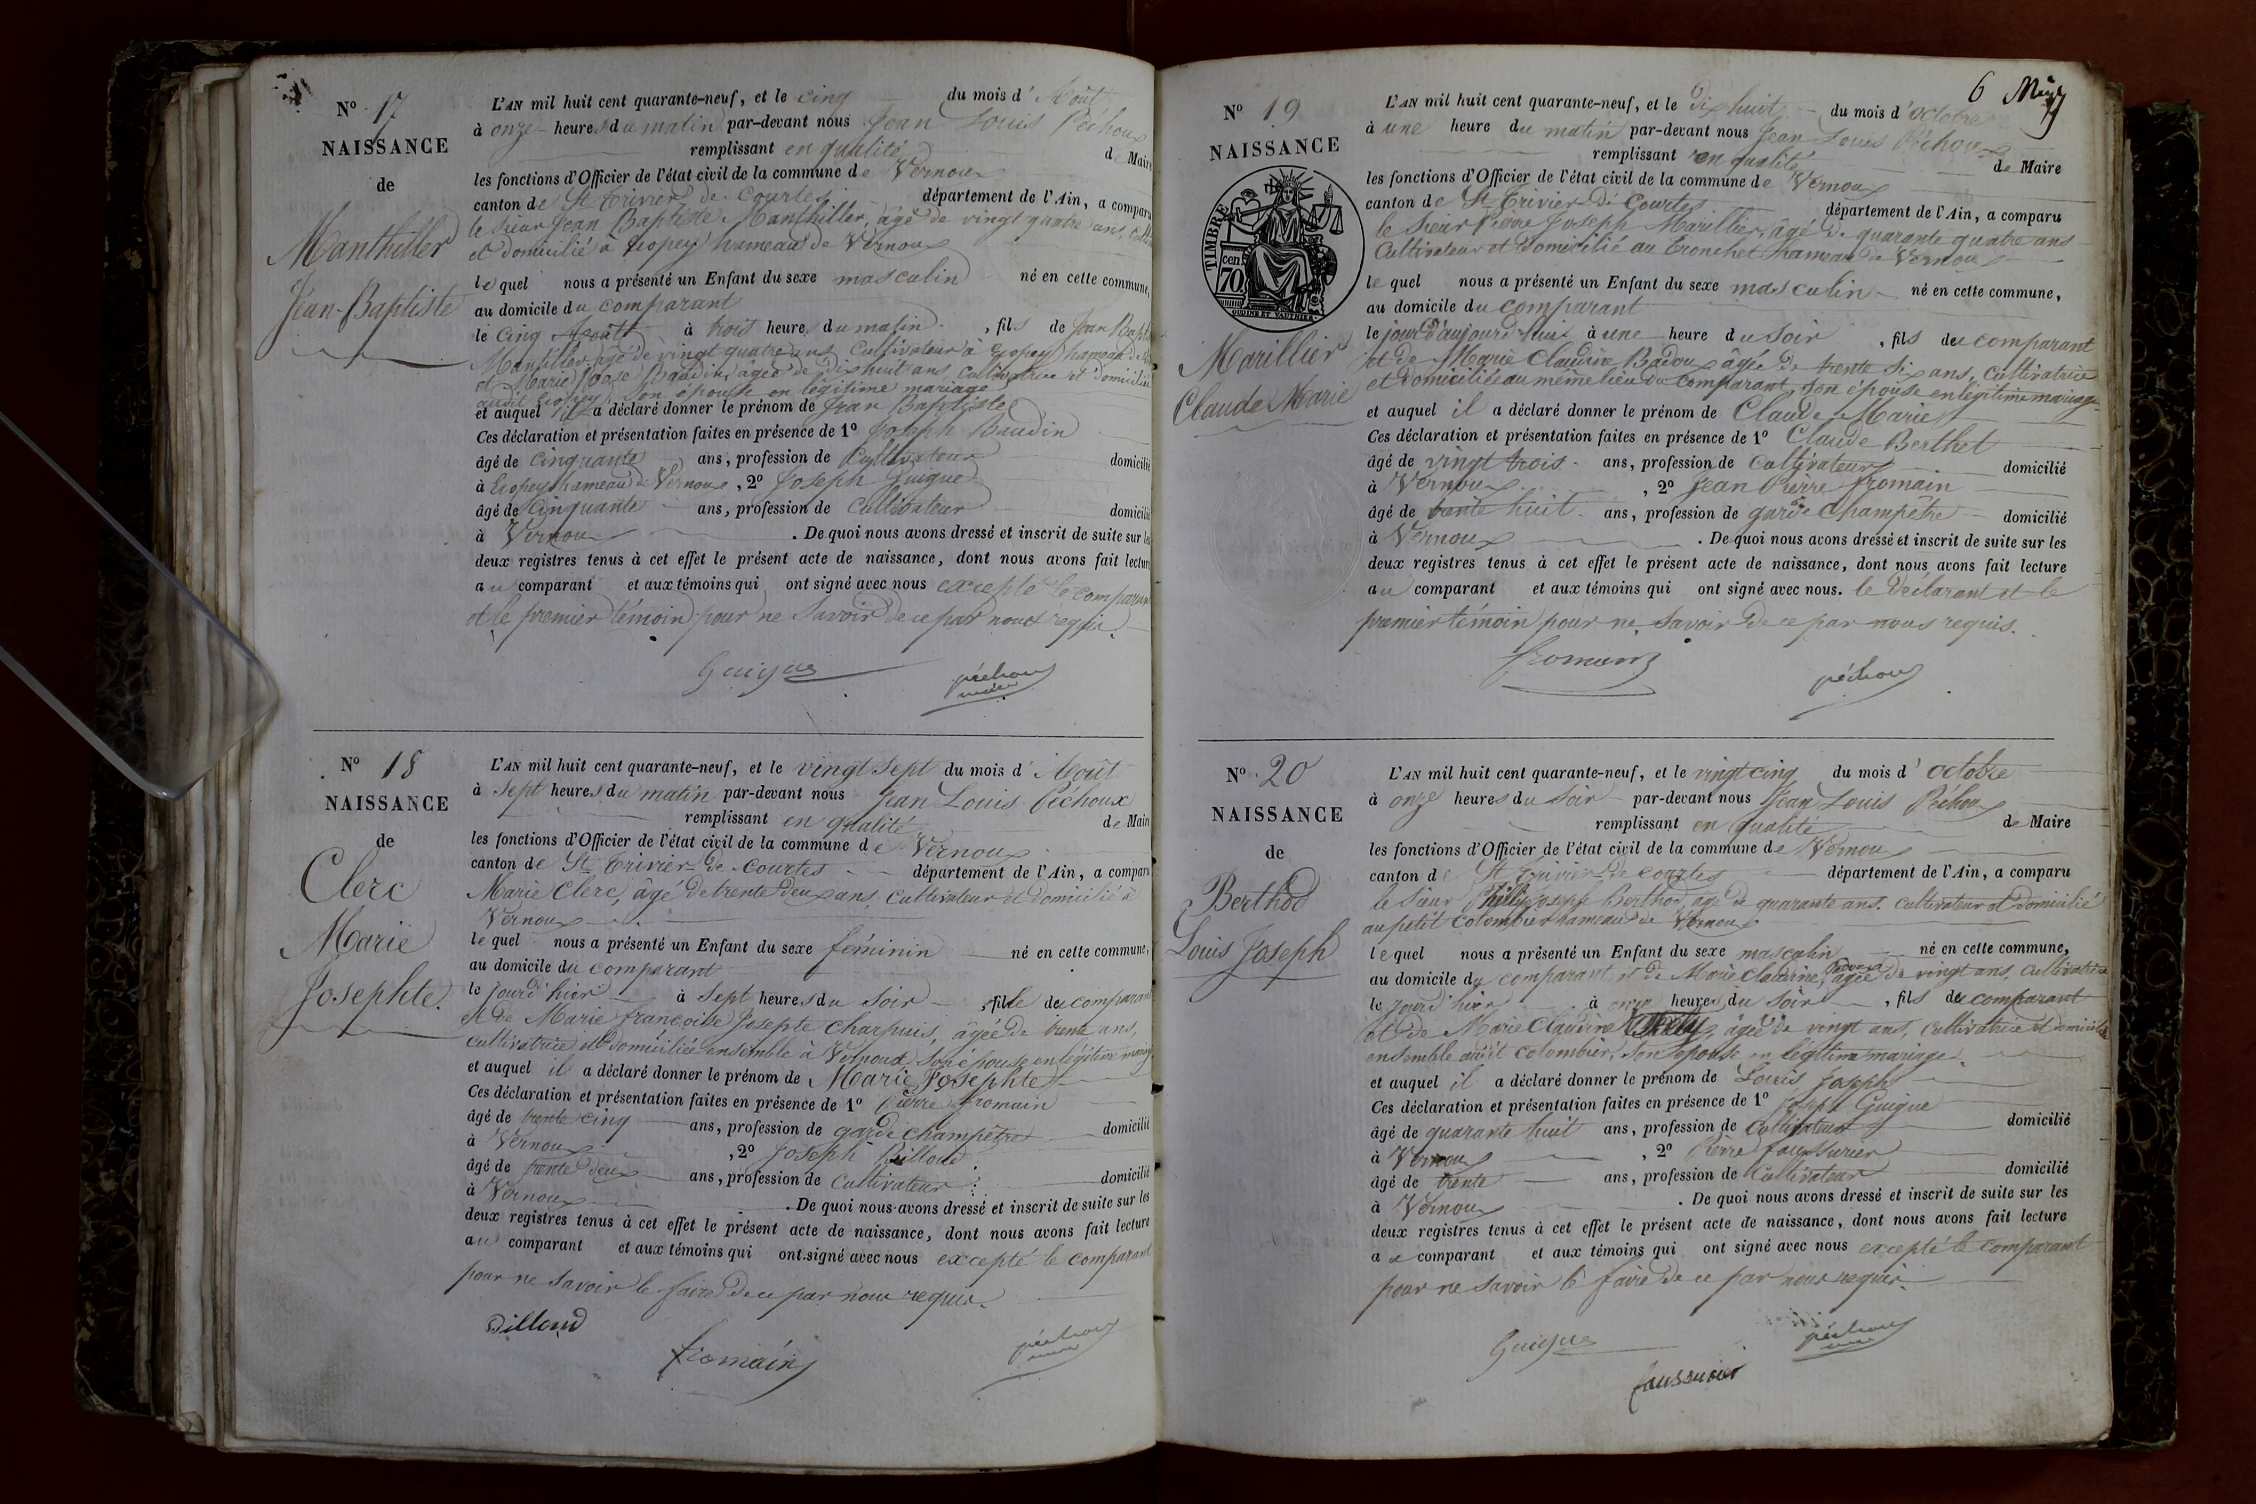 N° 17
NAISSANCE
de
Manthiller
Jean-Baptiste
L'AN mil huit cent quarante-neuf, et le cinq du mois d'Août
à onze heures du matin par-devant nous Jean Louis Péchoux
remplissant en qualité de Maire
les fonctions d'Officier de l'état civil de la commune de Vernoux
canton de St Trivier de Courtes département de l'Ain, a comparu
le sieur Jean Baptiste Manthiller, âgé de vingt quatre ans,
et domicilié à hameau de Vernoux
lequel nous a présenté un Enfant du sexe masculin né en cette commune,
au domicile du comparant
le cinq Août à trois heures du matin, fils de Jean Bap
Mantiller âgé de vingt quatre ans Cultivateur à hameau de
et Marie Baudin, âgée de dix huit ans, cultivatrice et domiciliée
son épouse en légitime mariage
et auquel il a déclaré donner le prénom de Jean Baptiste
Ces déclaration et présentation faites en présence de 1° Joseph Baudin
âgé de cinquante ans, profession de Cultivateur domicilié
à hameau de Vernoux, 2° Joseph Guigue
âgé de cinquante ans, profession de Cultivateur domicilié
à Vernoux. De quoi nous avons dressé et inscrit de suite sur les
deux registres tenus à cet effet le présent acte de naissance, dont nous avons fait lecture
au comparant et aux témoins qui ont signé avec nous excepté le comparant
et le premier témoin pour ne savoir de ce par nous requis.
Guigue péchoux
maire
N° 18
NAISSANCE
de
Clerc
Marie
Josephte.
L'AN mil huit cent quarante-neuf, et le vingt sept du mois d'Août
à sept heures du matin par-devant nous Jean Louis Péchoux
remplissant en qualité de Maire
les fonctions d'Officier de l'état civil de la commune de Vernoux
canton de St Trivier de Courtes département de l'Ain, a comparu
Marie Clerc, âgé de trente deux ans, cultivateur et domicilié à
Vernoux
lequel nous a présenté un Enfant du sexe féminin né en cette commune,
au domicile du comparant
le jour d'hier à sept heures du soir, fille du comparant
et de Marie françoise Josepte Charpuis, âgée de trente ans,
cultivatrice et domiciliée ensemble à Vernoux son épouse en légitime mariage
et auquel il a déclaré donner le prénom de Marie Josephte
Ces déclaration et présentation faites en présence de 1° Pierre fromain
âgé de trente cinq ans, profession de garde champêtre domicilié
à Vernoux, 2° Joseph Billoud
âgé de trente deux ans, profession de Cultivateur domicilié
à Vernoux. De quoi nous avons dressé et inscrit de suite sur les
deux registres tenus à cet effet le présent acte de naissance, dont nous avons fait lecture
au comparant et aux témoins qui ont signé avec nous excepté le comparant
pour ne savoir le faire de ce par nous requis.
Billoud
fromain péchoux
maire
6
N° 19
NAISSANCE
TIMBRE
70 cen.
OUDINÉ ET VAUTHIER
Marillier
Claude Marie
L'AN mil huit cent quarante-neuf, et le dix huit du mois d'octobre
à une heure du matin par-devant nous Jean Louis Péchoux
remplissant en qualité de Maire
les fonctions d'Officier de l'état civil de la commune de Vernoux
canton de St Trivier de Courtes département de l'Ain, a comparu
le Sieur Pierre Joseph Marillier, âgé de quarante quatre ans
Cultivateur et domicilié au tronchet hameau de Vernoux
lequel nous a présenté un Enfant du sexe masculin né en cette commune,
au domicile du comparant
le jour d'aujourd'hui à une heure du soir, fils du comparant
et de Marie Claudine Badoux âgée de trente six ans, cultivatrice
et domiciliée au même lieu du comparant, son épouse en légitime mariage
et auquel il a déclaré donner le prénom de Claude Marie
Ces déclaration et présentation faites en présence de 1° Claude Berthet
âgé de vingt trois ans, profession de cultivateur domicilié
à Vernoux, 2° Jean Pierre fromain
âgé de trente huit ans, profession de garde Champêtre domicilié
à Vernoux. De quoi nous avons dressé et inscrit de suite sur les
deux registres tenus à cet effet le présent acte de naissance, dont nous avons fait lecture
au comparant et aux témoins qui ont signé avec nous. le déclarant et le
premier témoin pour ne savoir de ce par nous requis.
fromain péchoux
N° 20
NAISSANCE
de
Berthod
Louis Joseph
L'AN mil huit cent quarante-neuf, et le vingt cinq du mois d'octobre
à onze heures du soir par-devant nous Jean Louis Péchoux
remplissant en qualité de Maire
les fonctions d'Officier de l'état civil de la commune de Vernoux
canton de St Trivier de Courtes département de l'Ain, a comparu
le Sieur Joseph Berthod, âgé de quarante ans, cultivateur et domicilié
au petit colombier hameau de Vernoux
lequel nous a présenté un Enfant du sexe masculin né en cette commune,
au domicile du comparant et de Marie Claudine, âgée de vingt ans, cultivatrice
le jour d'hier à onze heures du soir, fils du comparant
et de Marie Claudine, âgée de vingt ans, cultivatrice et domiciliée
ensemble audit colombier, son épouse en légitime mariage
et auquel il a déclaré donner le prénom de Louis Joseph
Ces déclaration et présentation faites en présence de 1° Joseph Guigue
âgé de quarante huit ans, profession de Cultivateur domicilié
à Vernoux, 2° Pierre faussurier
âgé de trente ans, profession de Cultivateur domicilié
à Vernoux. De quoi nous avons dressé et inscrit de suite sur les
deux registres tenus à cet effet le présent acte de naissance, dont nous avons fait lecture
au comparant et aux témoins qui ont signé avec nous excepté le comparant
pour ne savoir le faire de ce par nous requis.
Guigue péchoux
faussurier